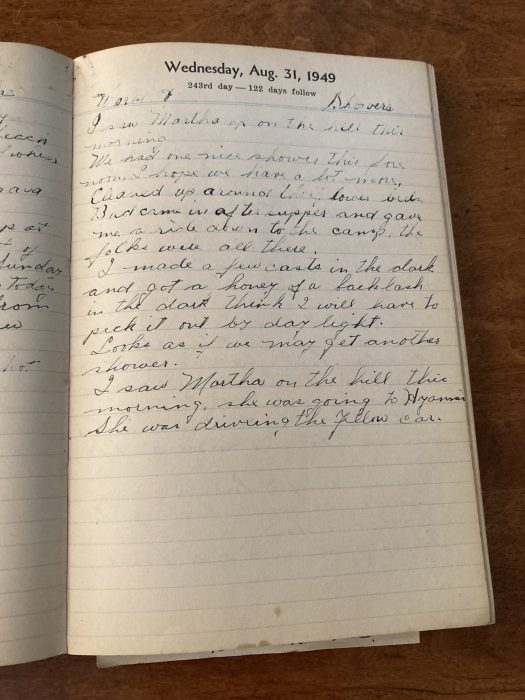 Wednesday, Aug. 31, 1949
243rd day — 122 days follow
Showers
I saw Martha up on the hill this
morning
We had one nice shower this fore
noon I hope we have a lot more.
Cleared up around the flower beds
Bud came in after supper and gave
me a ride down to the camp. the
folks were all there.
I made a few casts in the dark
and got a honey of a backlash
in the dark think I will have to
pick it out by day light.
Looks as if we may get another
shower.
I saw Martha on the hill this
morning, she was going to Hyannis
She was driveing the yellow car.
each
gava
ps at
t of
Sunday
today
from
hot